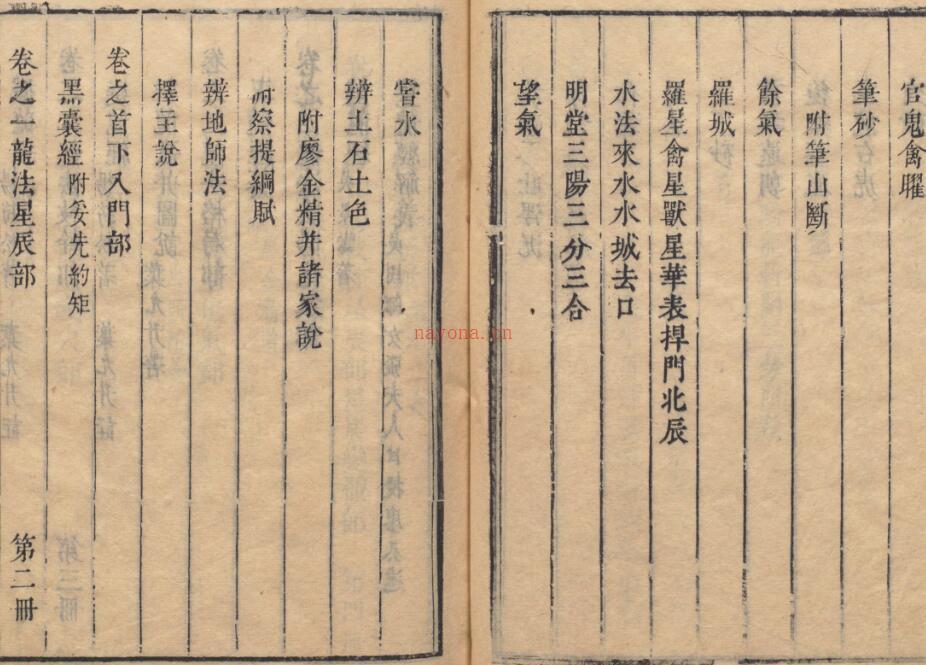 官鬼禽曜
筆砂
附筆山斷
餘氣
羅城
羅星禽星獸星華表捍門北辰
水法來水水城去口
明堂三陽三分三合
望氣
嘗水
辨土石土色
附廖金精并諸家說
附察提綱賦
辨地師法
擇主說
卷之首下入門部
黑囊經附妥先約矩
卷之一龍法星辰部 第二冊
nayona.cn